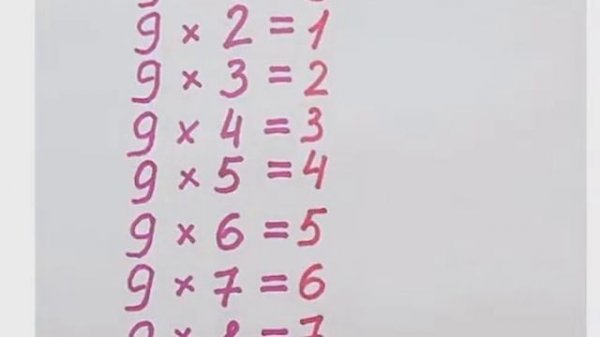 9 × 2 = 1
9 × 3 = 2
9 × 4 = 3
9 × 5 = 4
9 × 6 = 5
9 × 7 = 6
9 × 8 = 7